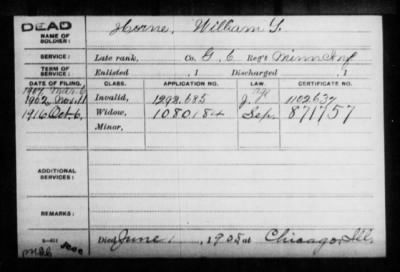 DEAD
NAME OF SOLDIER: Horne, William
SERVICE: Late rank, Co. G, 6 Reg't Minn Inf
TERM OF SERVICE: Enlisted , 1 Discharged , 1
DATE OF FILING. CLASS. APPLICATION NO. LAW. CERTIFICATE NO.
1907 Mar.
1902 Nov. 11 Invalid, 1292.685 1102.637
1916 Oct. 6, Widow, 1080184 Sep. 871757
Minor,
ADDITIONAL SERVICES:
REMARKS:
Died June , 1905 at Chicago, Ill.